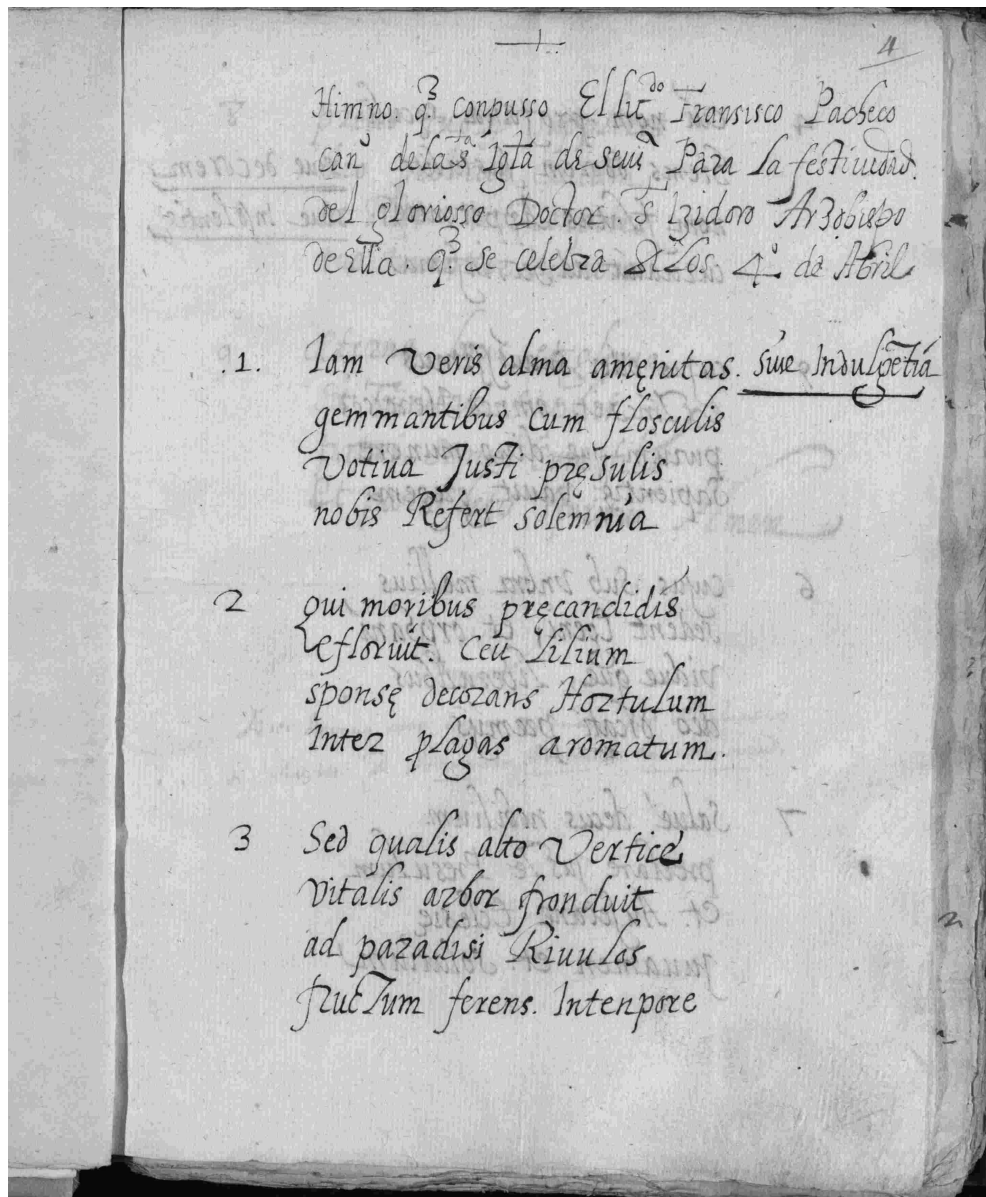 4
Himno. q̃. conpusso El licdo Fransisco Pacheco
cano de la sta Iglã de seuª Para la festiuidad.
del gloriosso Doctor S Izidoro Arzobispo
de Ella q̃. se celebra A los 4º de Abril
.1. Iam Veris alma amęnitas. siue Indulgẽtia
gemmantibus cum flosculis
Votiua Justi pręsulis
nobis Refert solemnia
2 qui moribus pręcandidis
efloruit. Ceu Lilium
sponsę decorans Hortulum
Inter plagas aromatum.
3 Sed qualis alto Vertice
Vitalis arbor fronduit
ad paradisi Riuulos
fructum ferens. Intenpore